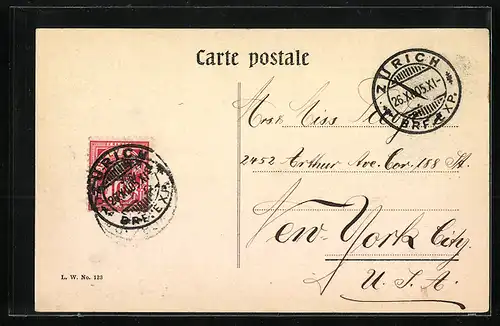 Carte postale
ZÜRICH
26.XI.05.XI-
BRF. EXP.
ZÜRICH
BRF. EXP.
10
Mrs. Miss
2452 Arthur Ave. Cor. 188 St.
New-York City.
U.S.A.
L. W. No. 123